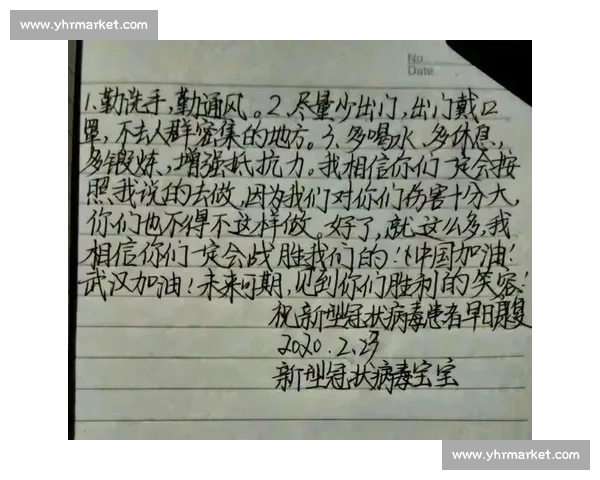 www.yhrmarket.com
No.
Date
1.勤洗手,勤通风。2.尽量少出门,出门戴口
罩,不去人群密集的地方。3.多喝水、多休息、
多锻炼,增强抵抗力。我相信你们一定会按
照我说的去做,因为我们对你们伤害十分大,
你们也不得不这样做。好了,就这么多,我
相信你们一定会战胜我们的!中国加油!
武汉加油!未来可期,见到你们胜利的笑容!
祝新型冠状病毒患者早日康复
2020.2.23
新型冠状病毒宝宝
www.yhrmarket.com